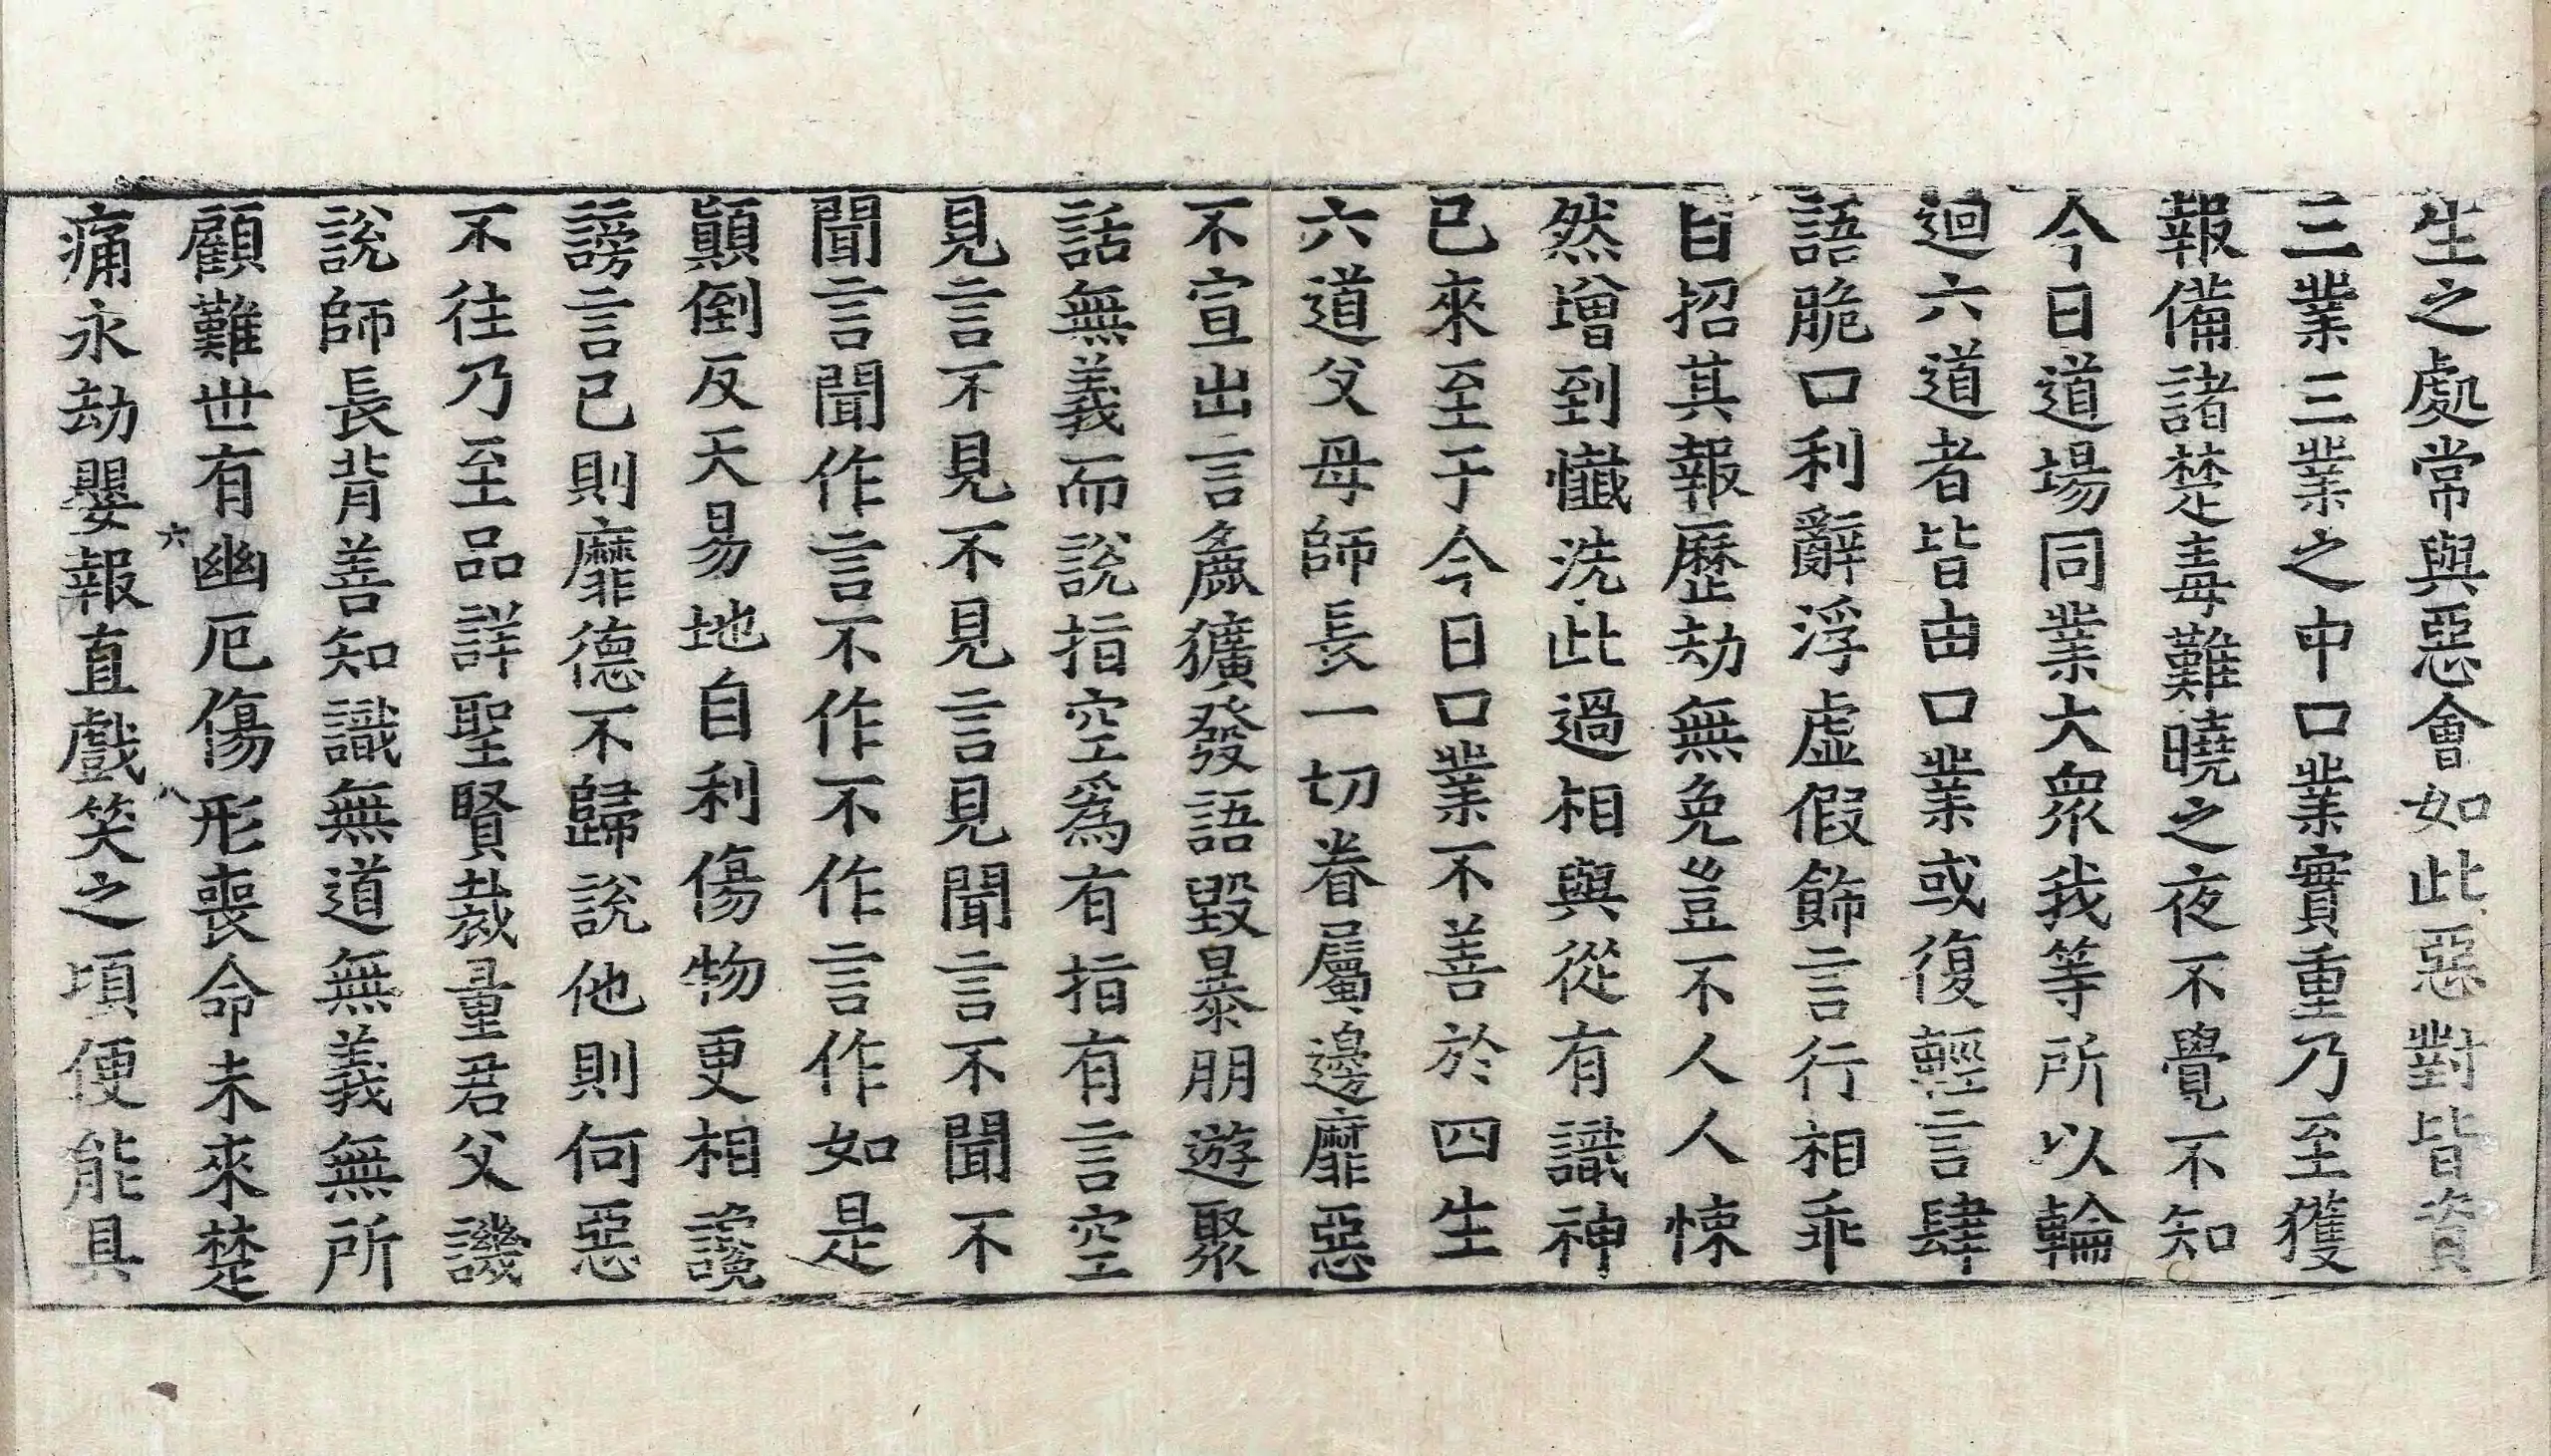 生之處常與惡會如此惡對皆資
三業三業之中口業實重乃至獲
報備諸楚毒難曉之夜不覺不知
今日道場同業大衆我等所以輪
迴六道者皆由口業或復輕言肆
語脆口利辭浮虛假飾言行相乖
自招其報歷劫無免豈不人人悚
然增到懺洗此過相與從有識神
已來至于今日口業不善於四生
六道父母師長一切眷屬邊靡惡
不宣出言麁獷發語毀暴朋遊聚
話無義而說指空爲有指有言空
見言不見不見言見聞言不聞不
聞言聞作言不作不作言作如是
顛倒反天易地自利傷物更相讒
謗言已則靡德不歸說他則何惡
不往乃至品詳聖賢裁量君父譏
說師長背善知識無道無義無所
顧難世有幽厄傷形喪命未來楚
六
八
痛永劫嬰報直戲笑之頃便能具